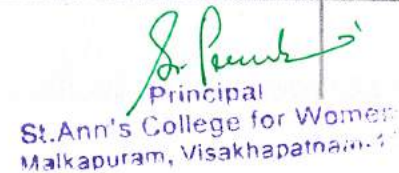 Principal
St.Ann's College for Women
Malkapuram, Visakhapatnam-1